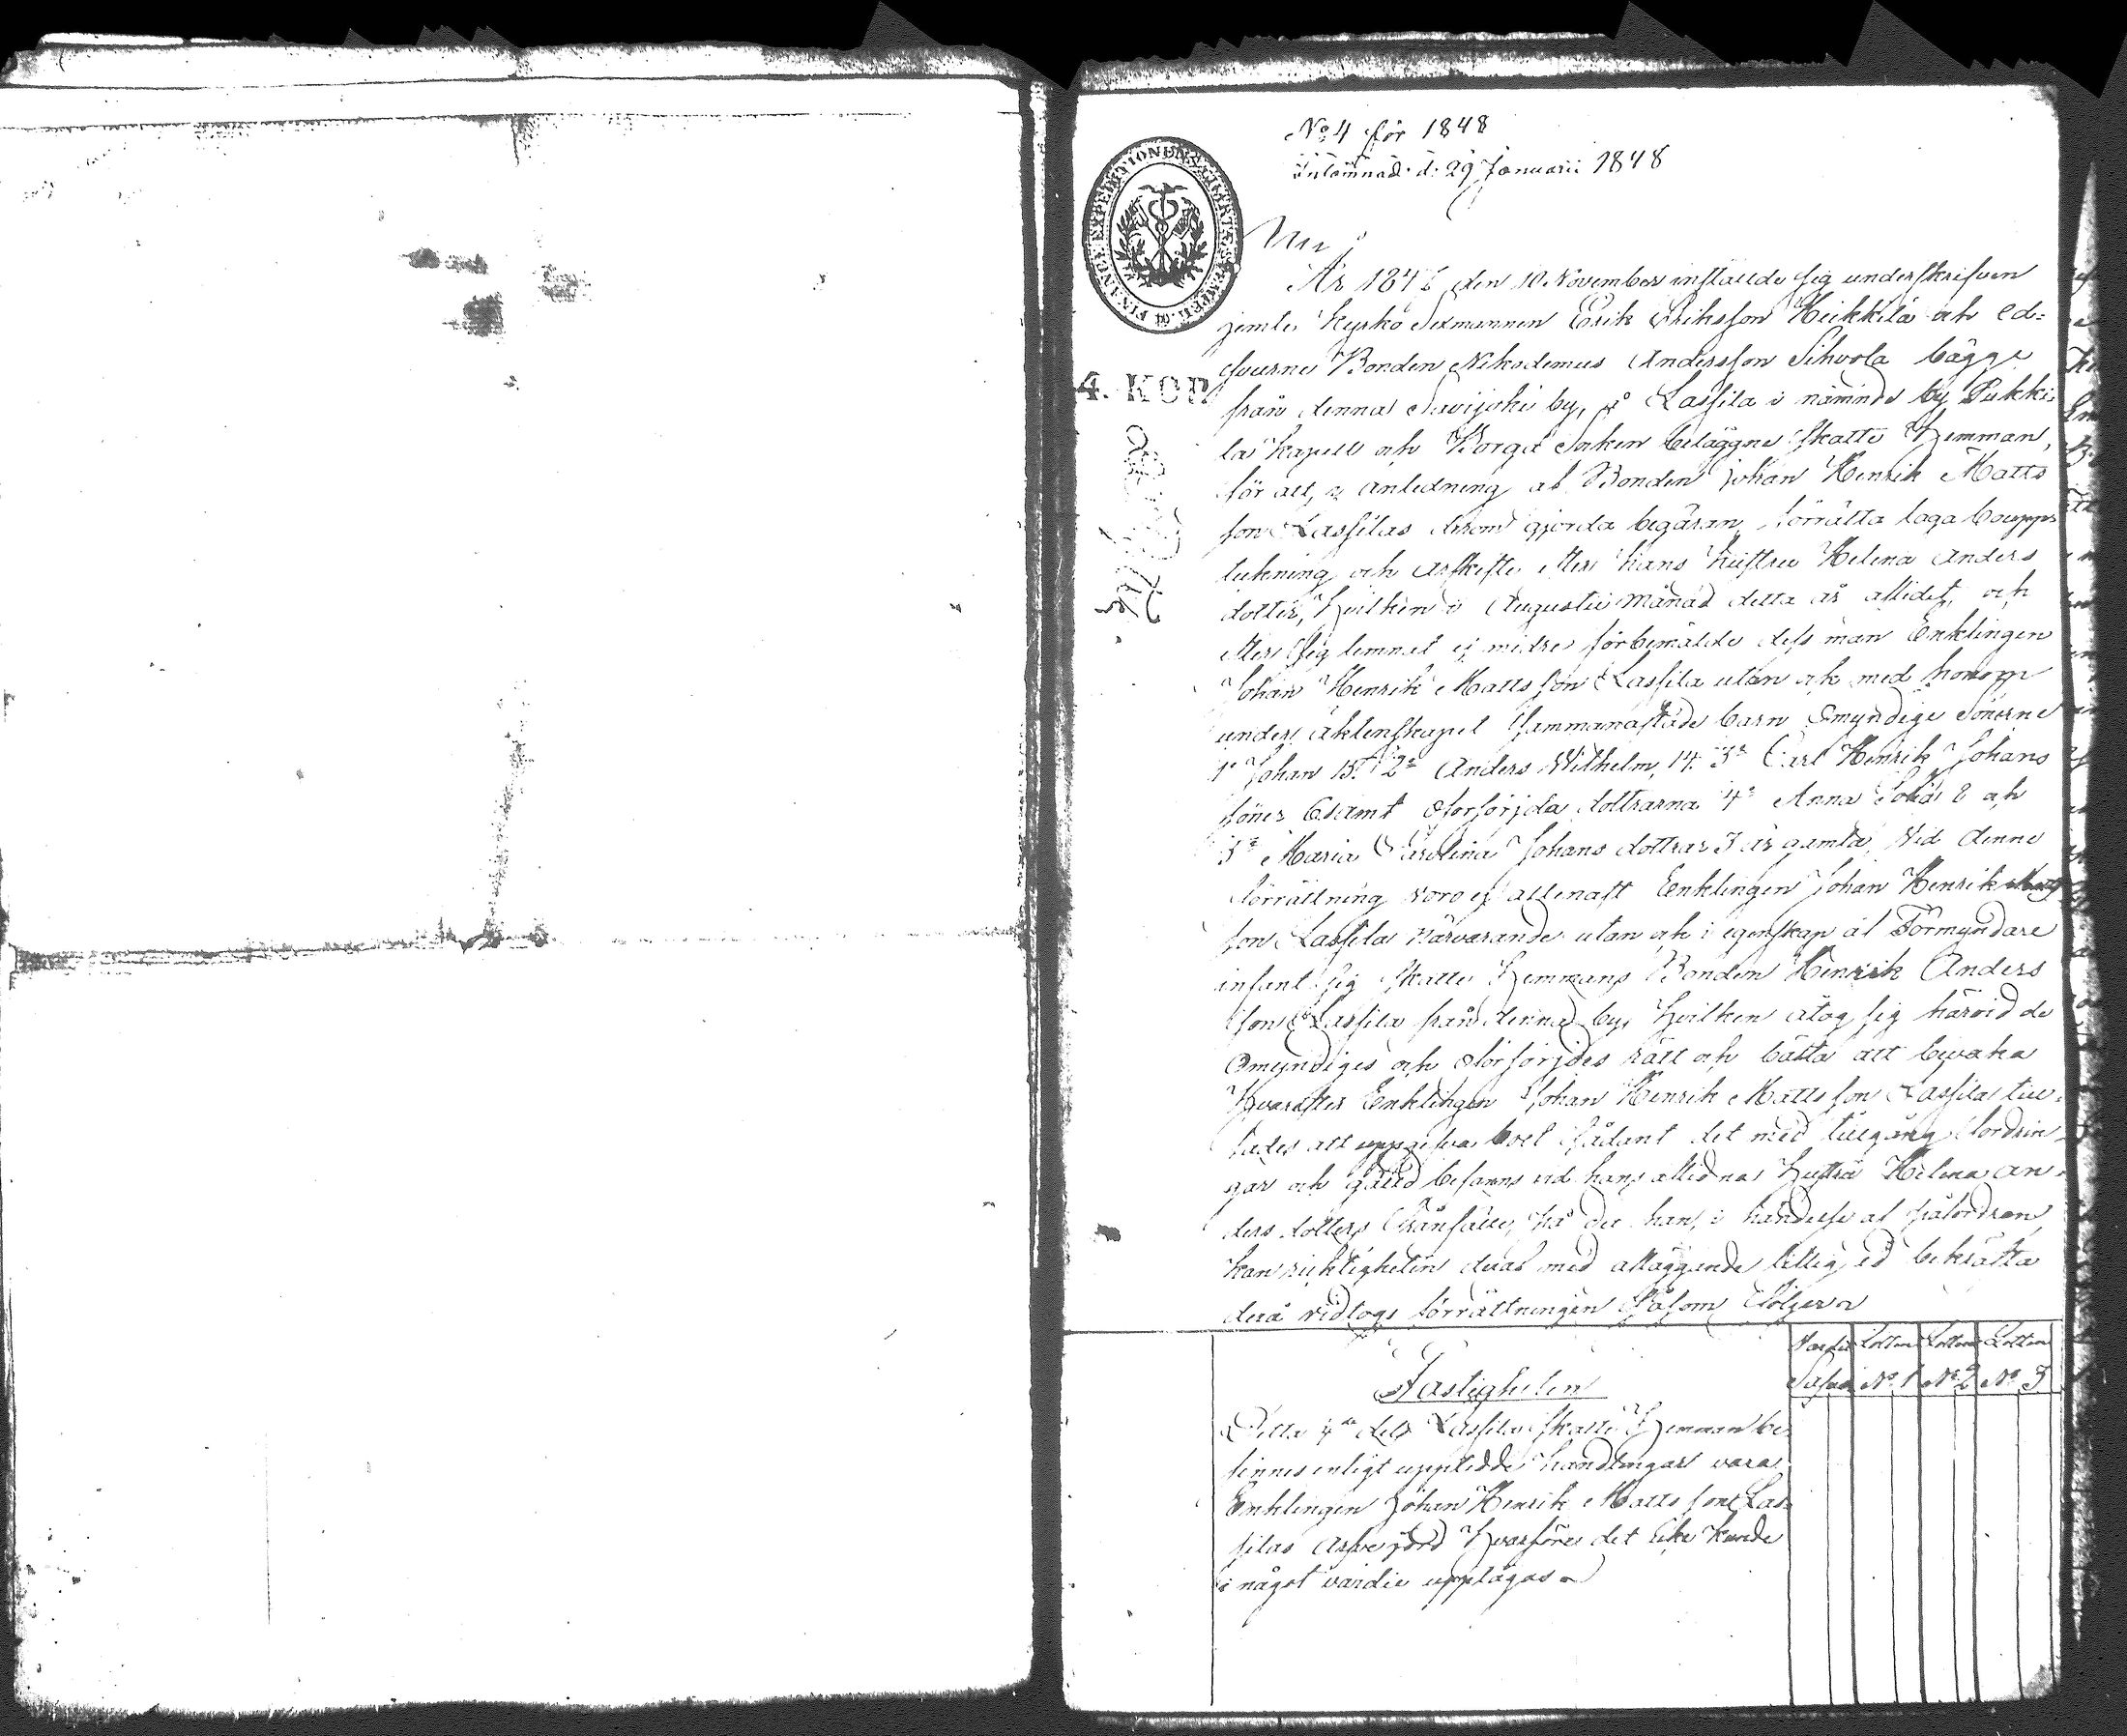 No 4 för 1848
Inlämnad d: 29 Januarii 1848
År 1847 den 10 November inställde sig underskrifven
jemte Kyrko Sexmannen Erik Eriksson Heikkilä och ed=
svurne Bonden Nikodemus Andersson Sihvola bägge
från denna Savijoki by, på Lassila i nämnde by Pukki=
la Kapell och Borgå Socken beläggne skatte Hemman,
för att, i anledning af Bonden Johan Henrik Matts
son Lassilas derom gjorda begäran, förrätta laga boupp=
tekning och arfskifte efter hans hustru Helena Anders
dotter, Hvilken i Augustii månad detta år aflidet, och
efter sig lemnat ej mindre förbemälde dess man Enklingen
Johan Henrik Mattsson Lassila utan ock med honom
under äktenskapet sammanaflade barn Omyndige Sönerne
1o Johan 15. 2o Anders Wilhelm, 14. 3o Carl Henrik Johans
söner 6 samt oförsörjda dottrarna 4o Anna Sofia 8 och
5o Maria Carolina Johans dottrar 3 år gamla. Vid denne
förrättning voro ej allenast Enklingen Johan Henrik Matts
son Lassila närvarande utan ock i egenskap af Förmyndare
infant sig skatte Hemmans Bonden Henrik Anders
son Lassila från denna by, Hvilken åtog sig härvid de
Omyndiges och oförsörjdes rätt och bästa att bevaka
Hvarefter Enklingen Johan Henrik Mattsson Lassila till=
sades att uppgifva boet sådant det med tillgång fordrin=
gar och gäld befanns vid hans aflidna Hustru Helena An=
ders dotters frånfälle, så det han, i händelse af påfordran,
kan riktigheten deraf med afläggande liflig ed bekräfta
derå vidtogs förrättningen såsom följer
Lotten Lotten Lotten
No 1 No 2 No 3
Fastigheten
Detta 4de dels Lassila skatte Hemman be
finnes enligt uppledde handlingar vara
Enklingen Johan Henrik Mattsson Las=
silas arfvejord Hvarföre det icke kunde
i något värdie upptagas
FINANCE EXPEDITIONEN
4. KOP.